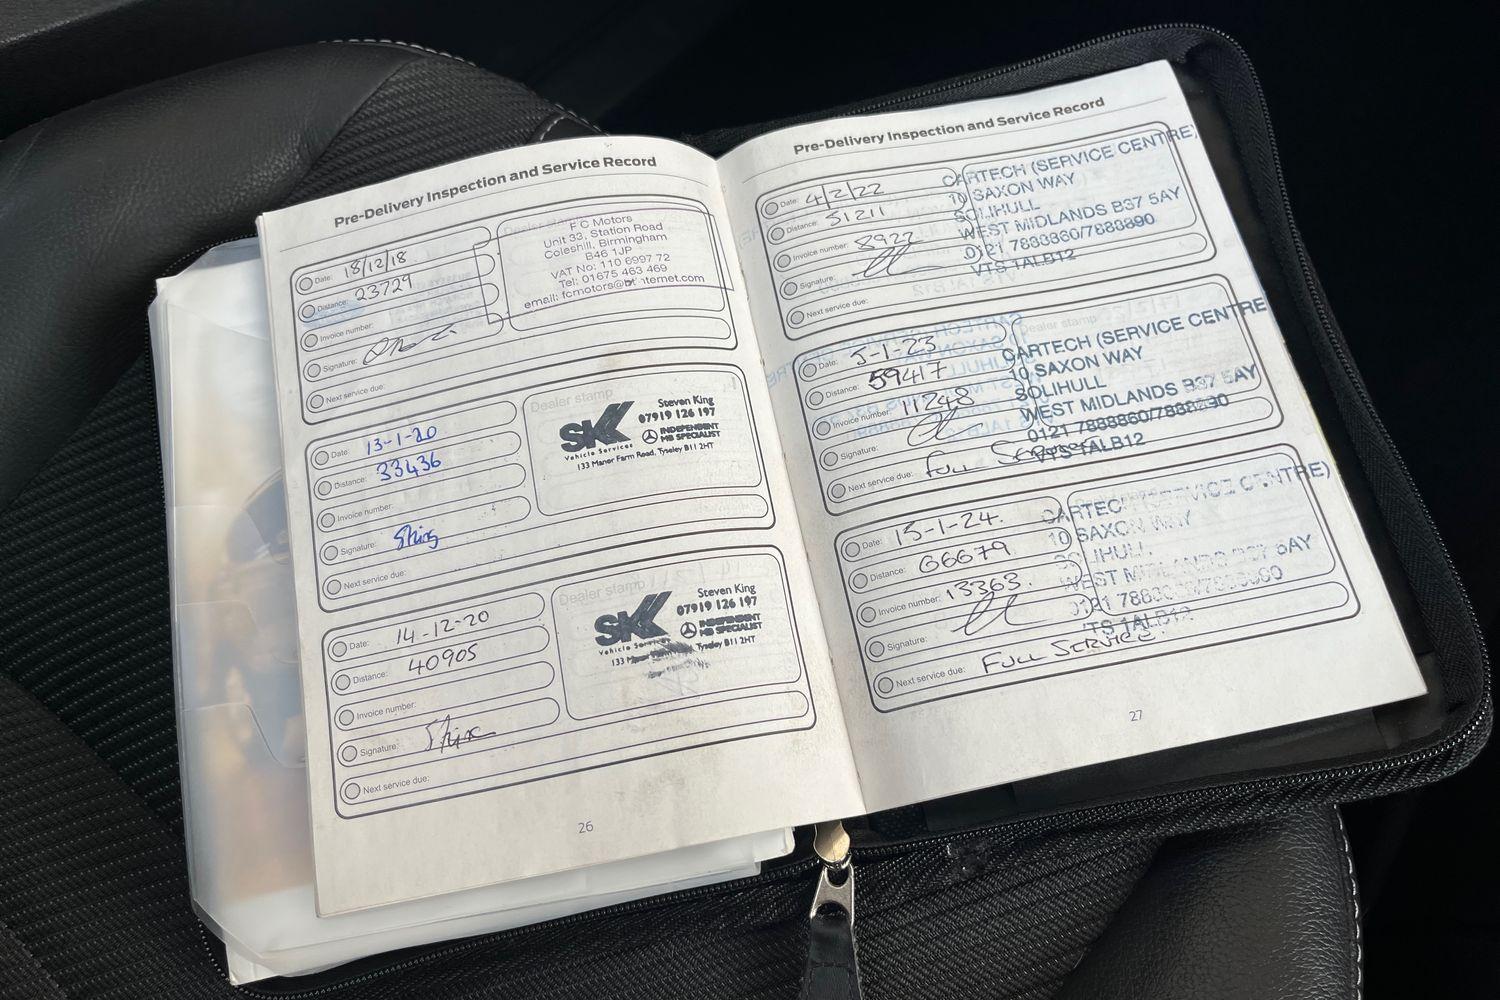 Pre-Delivery Inspection and Service Record
Dealer stamp
Date: 18/12/18
Distance: 23729
Invoice number:
Signature:
Next service due:
F C Motors
Unit 33, Station Road
Coleshill, Birmingham
B46 1JP
VAT No: 110 6997 72
Tel: 01675 463 469
email: fcmotors@btinternet.com
Date: 13-1-20
Distance: 33436
Invoice number:
Signature:
Next service due:
Dealer stamp
SK
Vehicle Services
Steven King
07919 126 197
INDEPENDENT
MB SPECIALIST
133 Manor Farm Road, Tyseley B11 2HT
Date: 14-12-20
Distance: 40905
Invoice number:
Signature:
Next service due:
Dealer stamp
SK
Vehicle Services
Steven King
07919 126 197
INDEPENDENT
MB SPECIALIST
133 Tyseley B11 2HT
26
Pre-Delivery Inspection and Service Record
Date: 4/2/22
Distance: 51211
Invoice number: 8922
Signature:
Next service due:
CARTECH (SERVICE CENTRE)
10 SAXON WAY
SOLIHULL
WEST MIDLANDS B37 5AY
0121 7888860/7888890
VTS 1ALB12
Date: 5-1-23
Distance: 59417
Invoice number: 11248
Signature:
Next service due: FULL SERVICE
Dealer stamp
CARTECH (SERVICE CENTRE
10 SAXON WAY
SOLIHULL
WEST MIDLANDS B37 5AY
0121 7888860/7888890
VTS 1ALB12
Date: 15-1-24.
Distance: 66679
Invoice number: 13363.
Signature:
Next service due: FULL SERVICE.
CARTECH (SERVICE CENTRE)
10 SAXON WAY
SOLIHULL
WEST MIDLANDS B37 5AY
0121
VTS 1ALB12
27